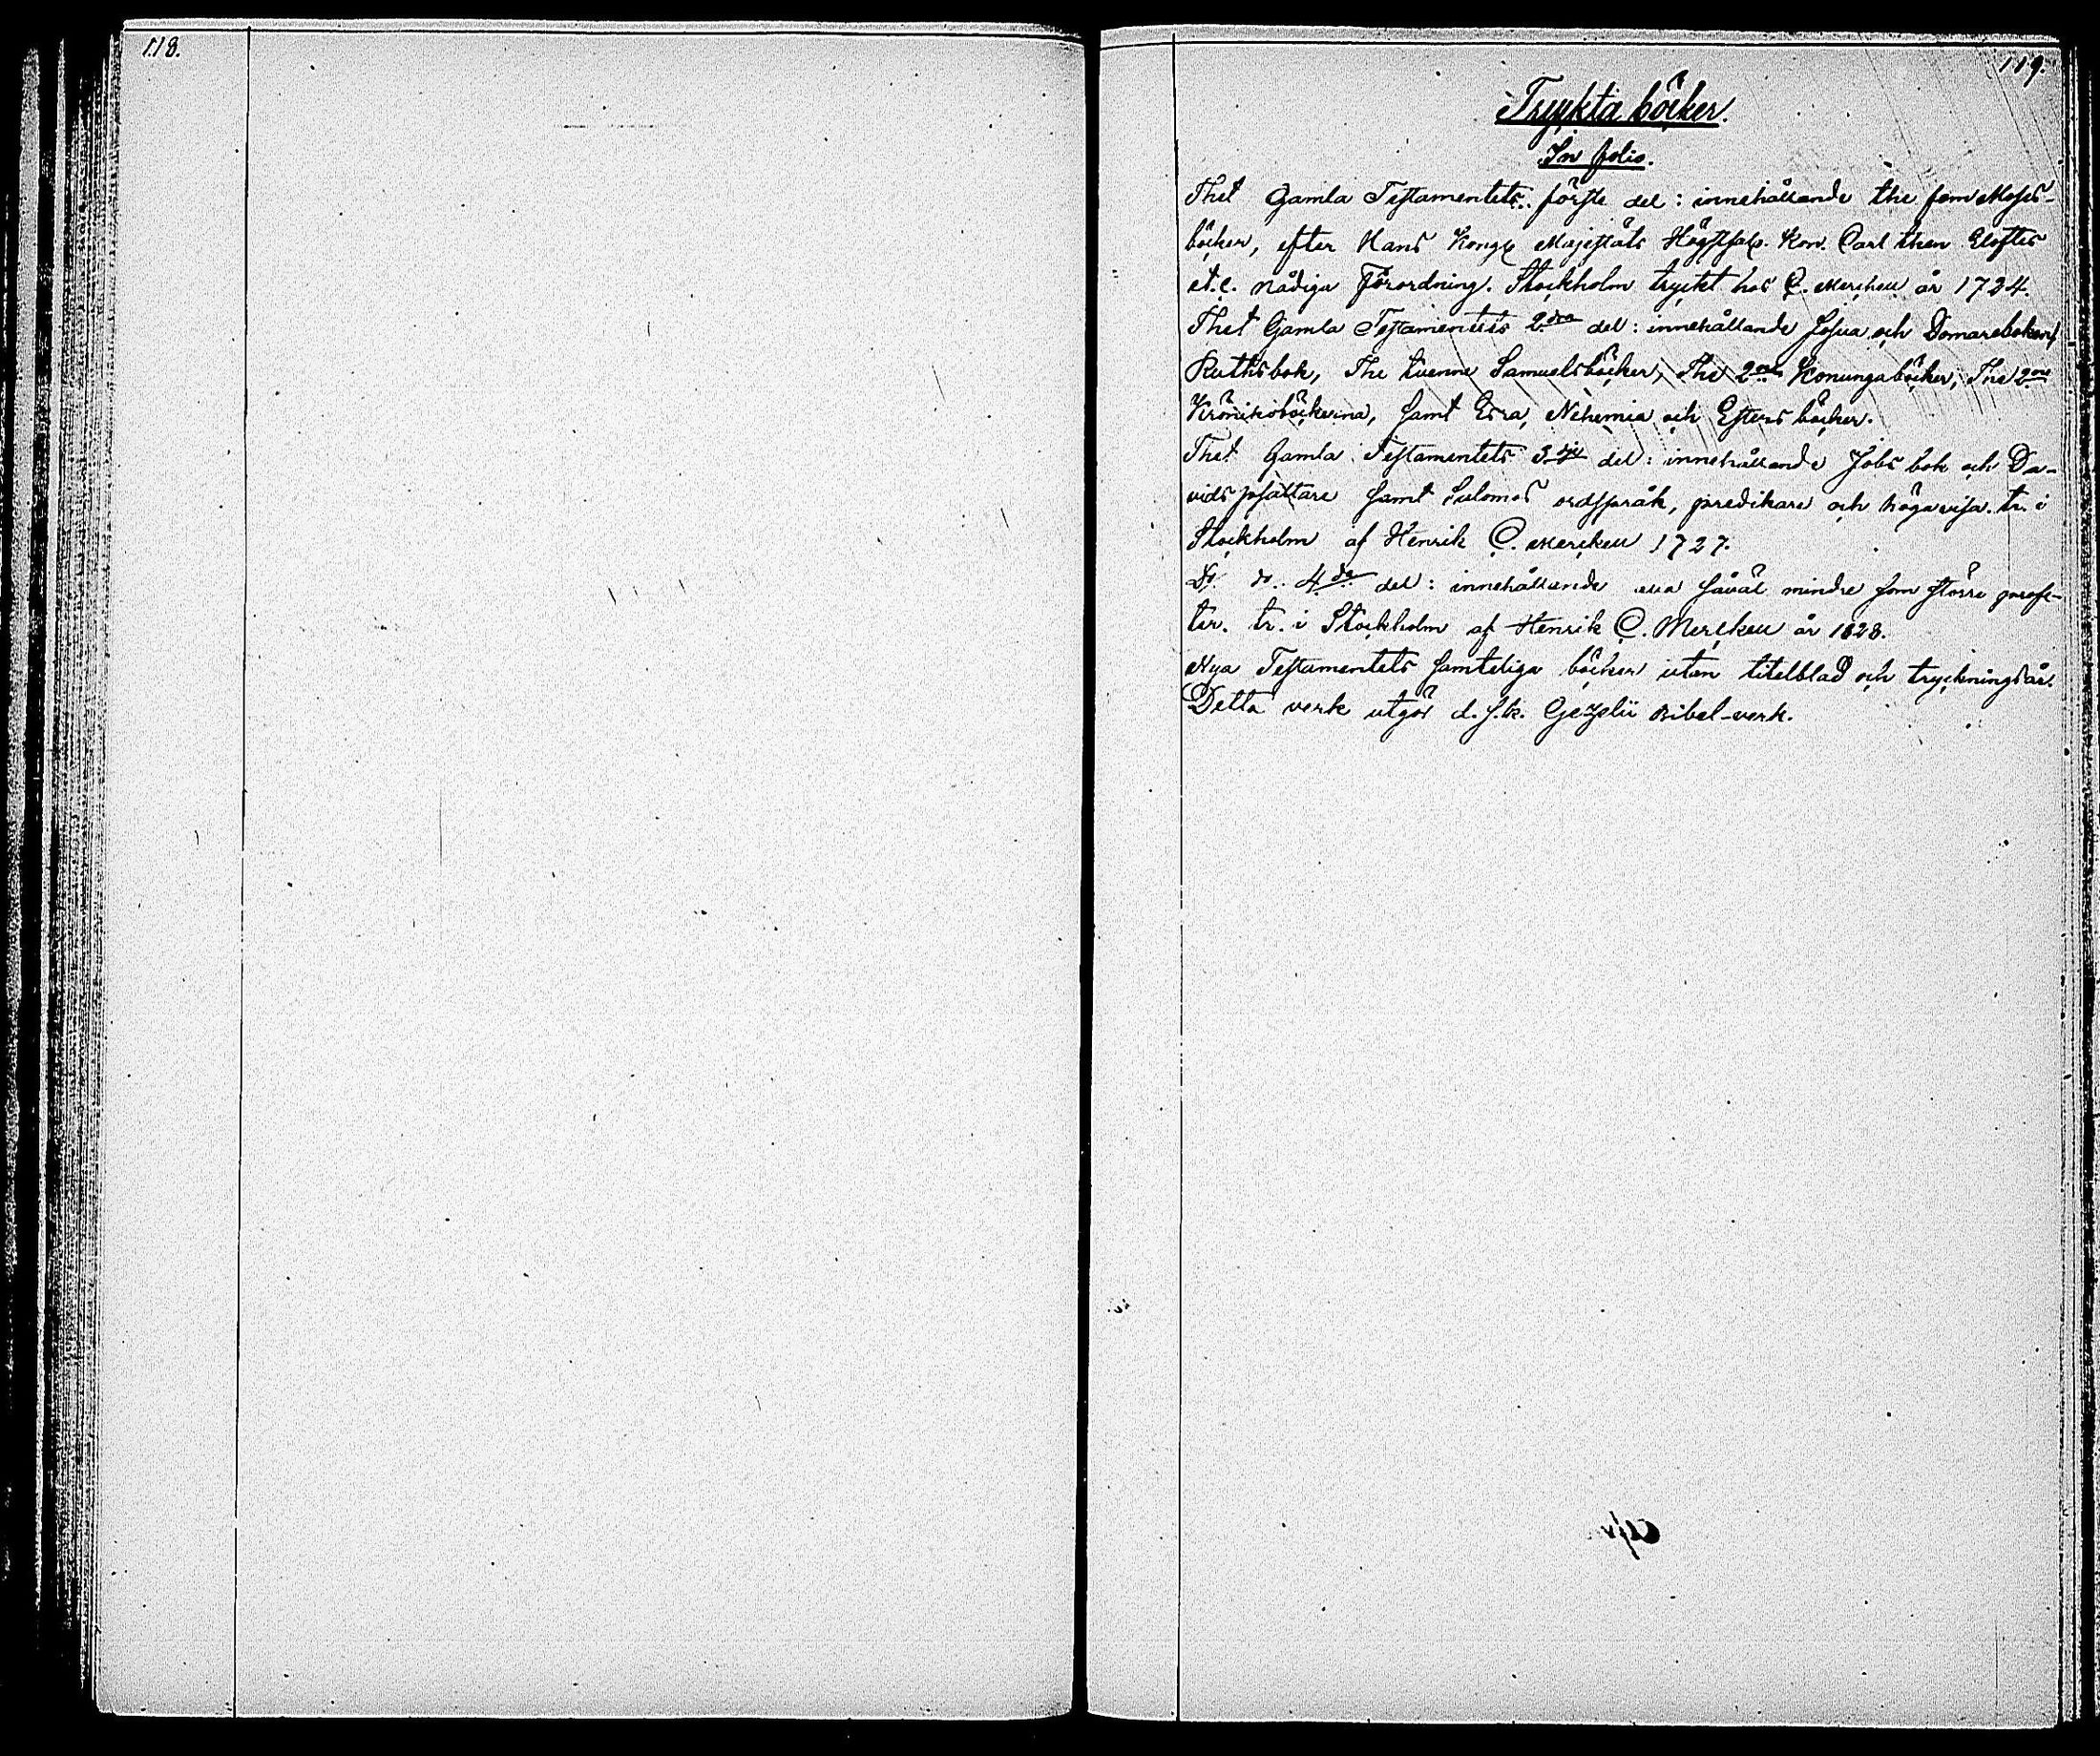 118.
119.
Tryckta böcker.
In folio.
Thet Gamla Testamentets förste del: innehållande the fem Moses-
böcker, efter Hans Kongl Majestäts Högstsal. Kon. Carl then Eloftes
et.c. nådiga Förordning. Stockholm tryckt hos C. Merckell år 1724.
Thet Gamla Testamentets 2dra del: innehållande Josua och Domareboken,
Ruthsbok, The tvenne Samuelsböcker, The 2ne Konungaböcker, The 2ne
Krönikoböckerna, samt Esra, Nehemia och Esters böcker.
Thet Gamla Testamentets 3dje del: innehållande Jobs bok och Da-
vids psaltare samt Salomos ordspråk, predikare och högavisa. tr. i
Stockholm af Henrik C. Merckell 1727.
Do do. 4de del: innehållande alla såväl mindre som större profe-
ter. tr. i Stockholm af Henrik C. Merckell år 1828.
Nya Testamentets samteliga böcker utan titelblad och tryckningsår.
Detta verk utgör d. s. k. Gezelii Bibel-verk.